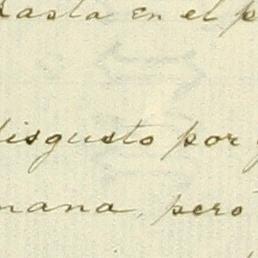 hasta en el p
disgusto por q
mana, pero